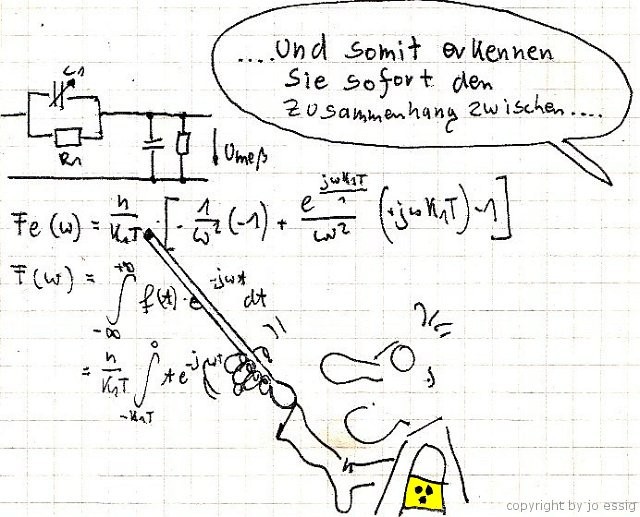 ....Und somit erkennen
Sie sofort den
Zusammenhang zwischen....
C1
R1
Umeß
Fe(ω) = n/K1T · [ - 1/ω² (-1) + e^(jωK1T/1)/ω² (+jωK1T) - 1 ]
F(ω) = ∫_{-∞}^{+∞} f(t) · e^{-jωt} dt
= n/K1T ∫_{-K1T}^{0} t e^{-jωt}
copyright by jo essig